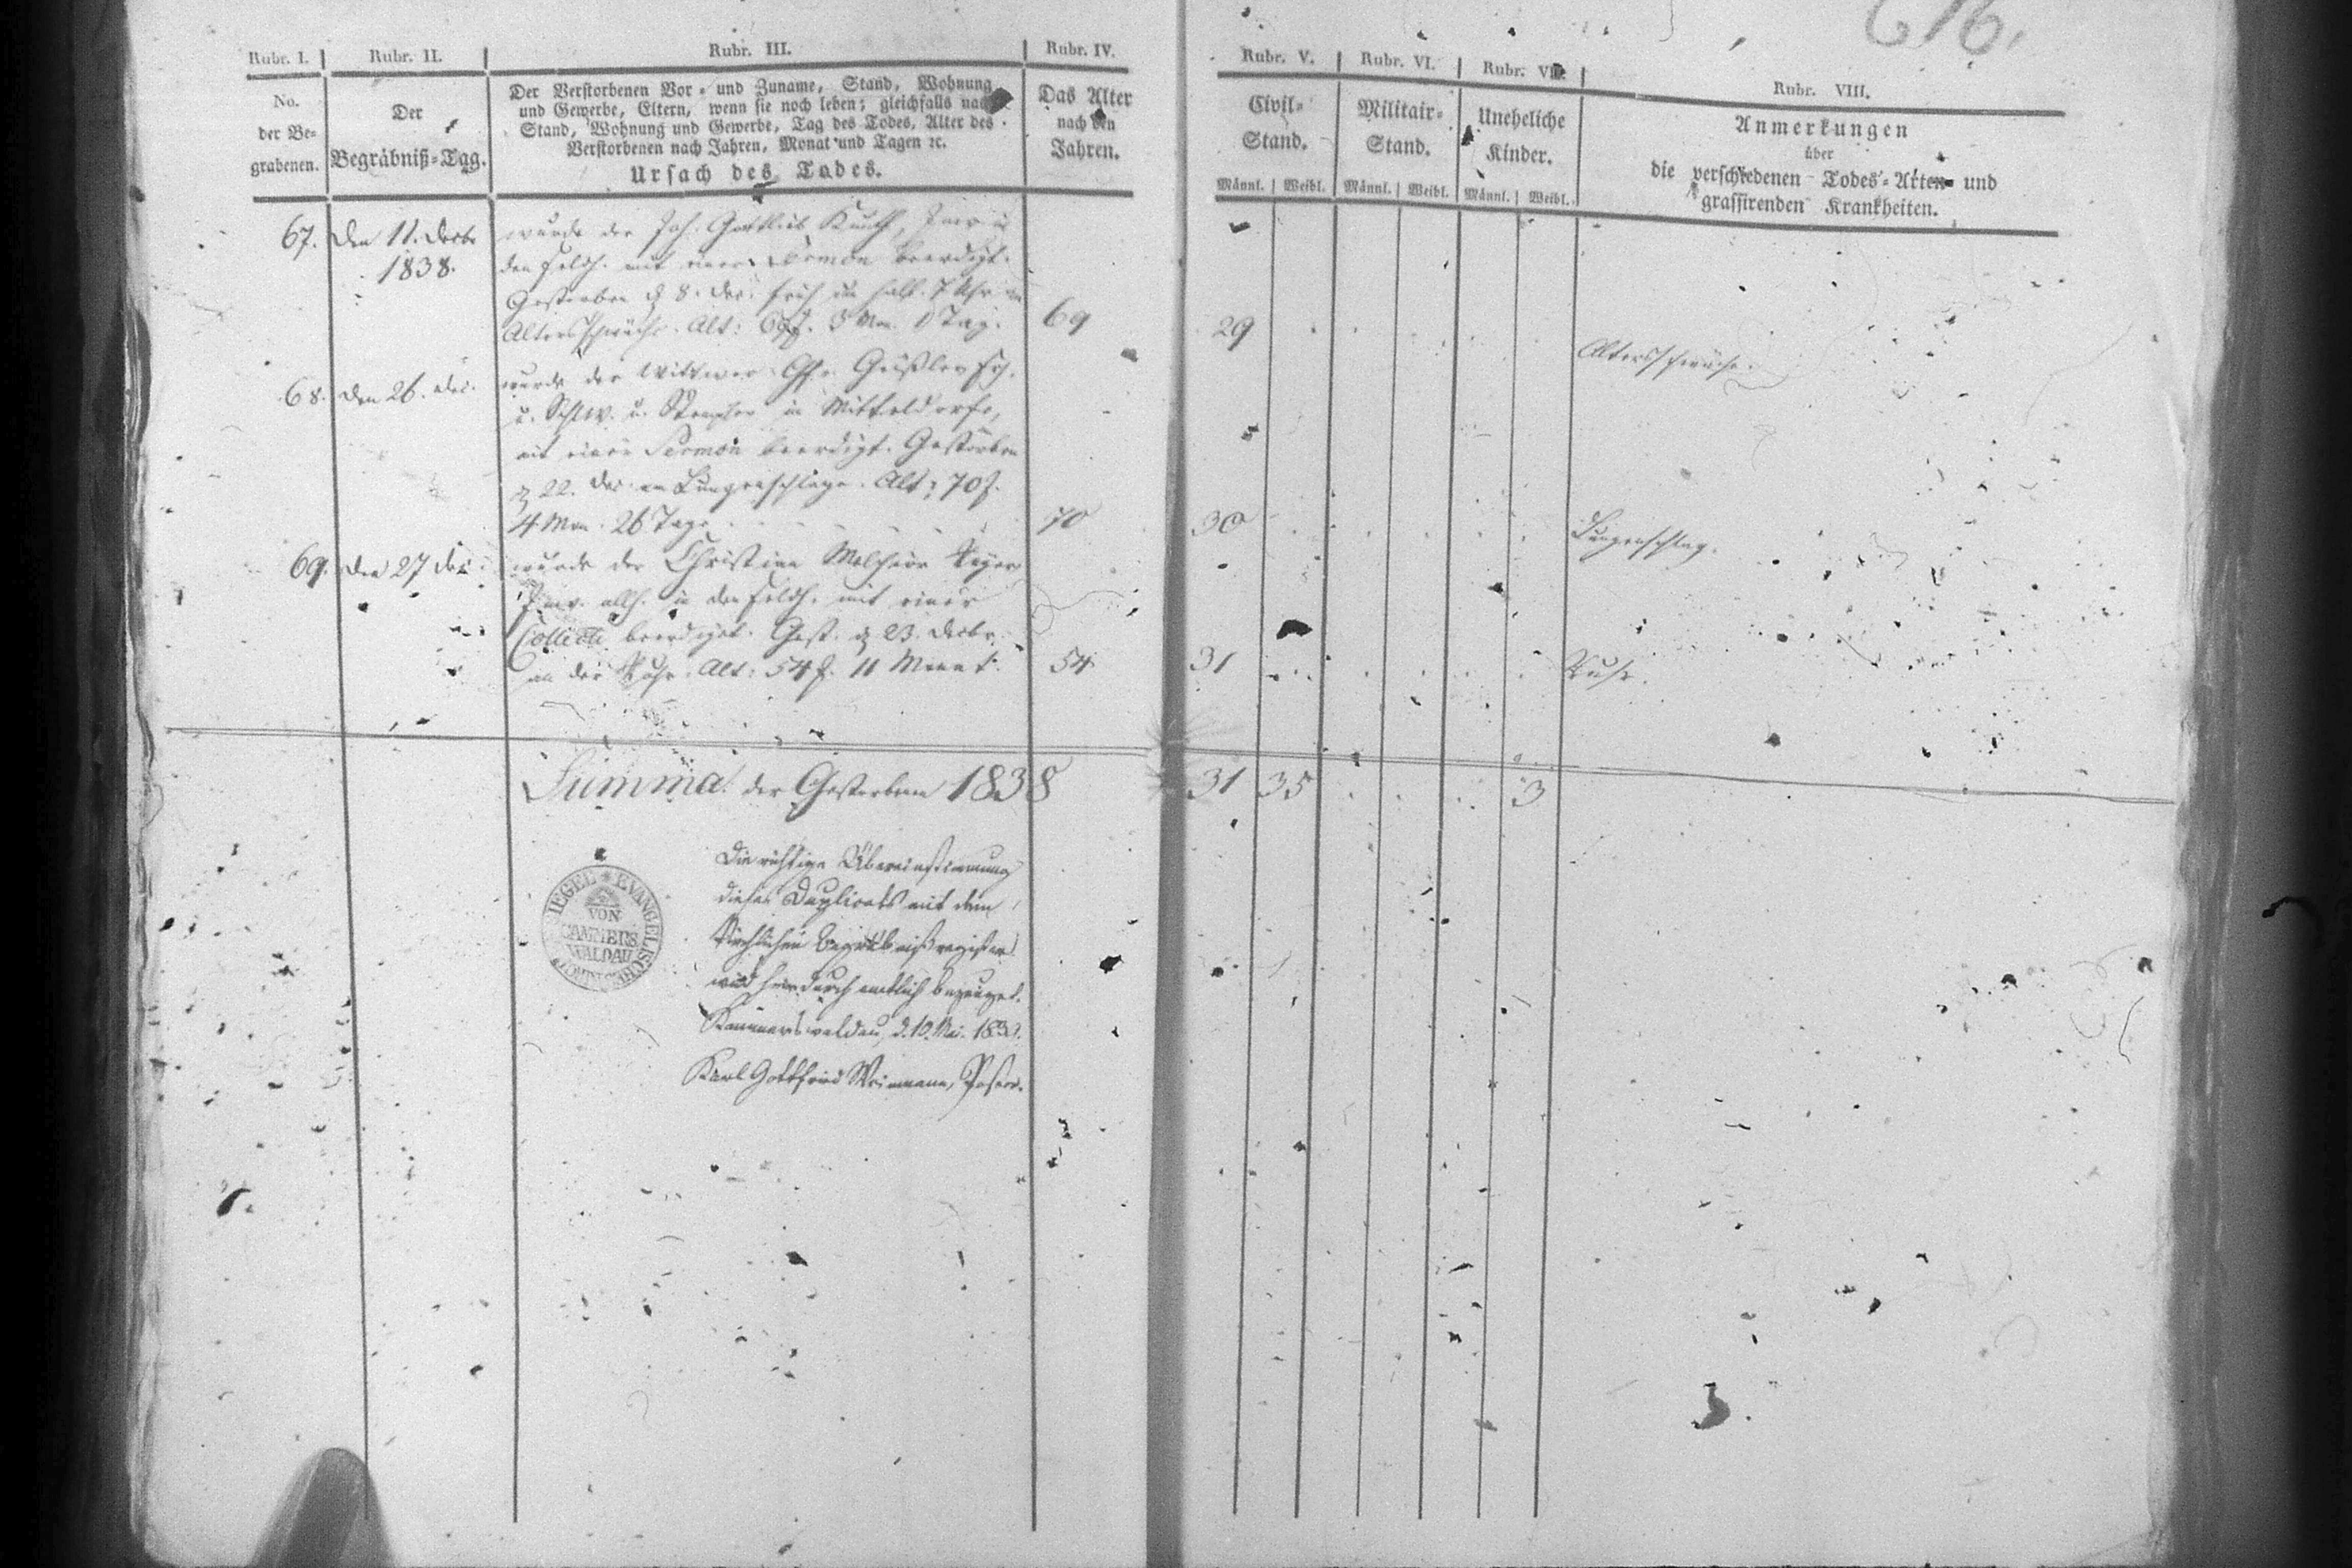 616.
Rubr. I. Rubr. II. Rubr. III. Rubr. IV. Rubr. V. Rubr. VI. Rubr. VII. Rubr. VIII.
No.
der Be-
grabenen.
Der
Begräbniß-Tag.
Der Verstorbenen Vor- und Zuname, Stand, Wohnung
und Gewerbe, Eltern, wenn sie noch leben; gleichfalls nach
Stand, Wohnung und Gewerbe, Tag des Todes, Alter des
Verstorbenen nach Jahren, Monat und Tagen ꝛc.
Ursach des Todes.
Das Alter
nach den
Jahren.
Civil-
Stand.
Männl. Weibl.
Militair-
Stand.
Männl. Weibl.
Uneheliche
Kinder.
Männl. Weibl.
Anmerkungen
über
die verschiedenen Todes-Arten und
grassirenden Krankheiten.
67. den 11. Decbr wurde der Joh. Gottlieb
1838. mit einer Sermon beerdigt.
Gestorben d 8. Dec. früh um halb 7 Uhr an
Altersschwäche. Alt: 69 J. 3 Mon. Tag. 69 29 Altersschwäche.
68. den 26. Dec. wurde der Wittwer Gfr. Geißler
in Mitteldorfe,
mit einer Sermon beerdigt. Gestorben
d 22. Dec. am Lungenschlage. Alt: 70 J.
4 Mon. 26 Tage 70 30 Lungenschlag.
69. den 27 Dec. wurde der Christian Melchior
Inw. allh. in mit einer
Collecte beerdigt. Gest. d 23. Decbr.
an der Ruhr. Alt: 54 J. 11 Monat. 54 31 Ruhr.
Summa der Gestorbenen 1838 31 35 3
Die richtige Übereinstimmung
dieses Duplicats mit dem
kirchlichen Begräbnißregister
wird hierdurch amtlich bezeuget.
Kammerswaldau, d. 10. Mai. 183
Karl Gottfried Weimann, Pastor.
EVANGELISCHE
VON
CAMMERS
WALDAU